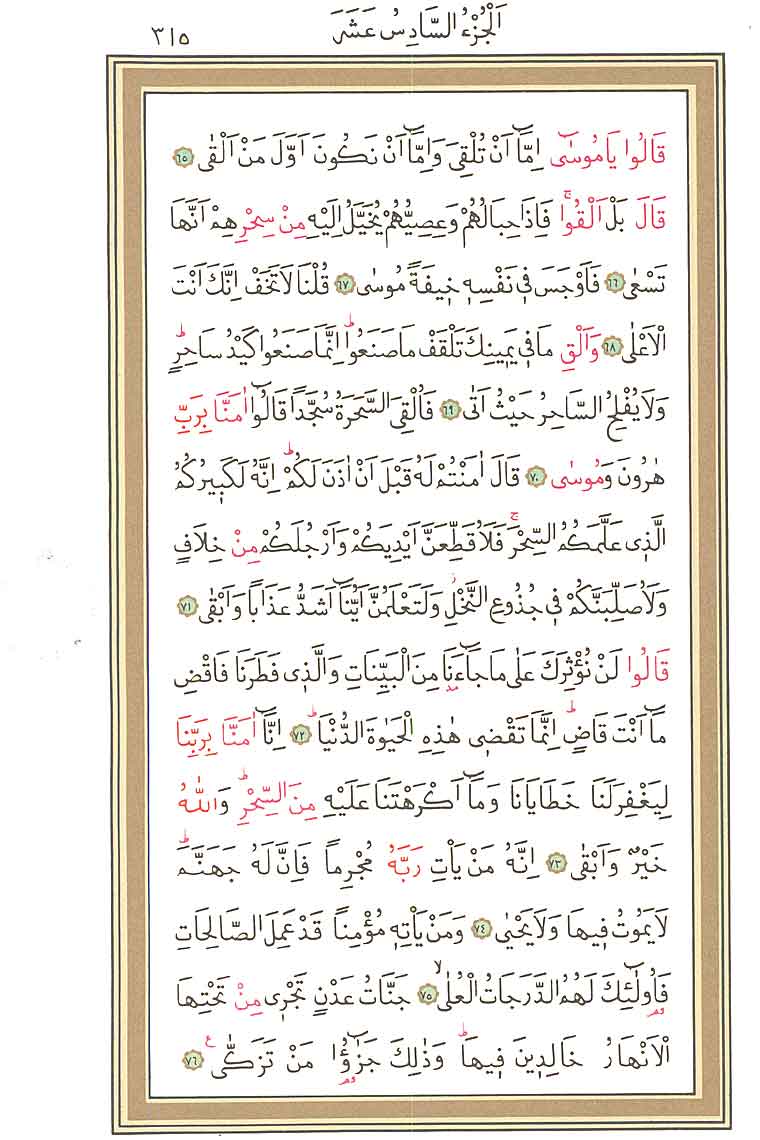 اَلْجُزْءُ السَّادِسُ عَشَرَ ٣١٥
قَالُوا يَا مُوسٰٓى اِمَّٓا اَنْ تُلْقِىَ وَاِمَّٓا اَنْ نَكُونَ اَوَّلَ مَنْ اَلْقٰى ﴿٦٥﴾
قَالَ بَلْ اَلْقُواۚ فَاِذَا حِبَالُهُمْ وَعِصِيُّهُمْ يُخَيَّلُ اِلَيْهِ مِنْ سِحْرِهِمْ اَنَّهَا
تَسْعٰى ﴿٦٦﴾ فَاَوْجَسَ فٖى نَفْسِهٖ خٖيفَةً مُوسٰى ﴿٦٧﴾ قُلْنَا لَا تَخَفْ اِنَّكَ اَنْتَ
الْاَعْلٰى ﴿٦٨﴾ وَاَلْقِ مَا فٖى يَمٖينِكَ تَلْقَفْ مَا صَنَعُواؕ اِنَّمَا صَنَعُوا كَيْدُ سَاحِرٍؕ
وَلَا يُفْلِحُ السَّاحِرُ حَيْثُ اَتٰى ﴿٦٩﴾ فَاُلْقِىَ السَّحَرَةُ سُجَّدًا قَالُٓوا اٰمَنَّا بِرَبِّ
هٰرُونَ وَمُوسٰى ﴿٧٠﴾ قَالَ اٰمَنْتُمْ لَهُ قَبْلَ اَنْ اٰذَنَ لَكُمْؕ اِنَّهُ لَكَبٖيرُكُمُ
الَّذٖى عَلَّمَكُمُ السِّحْرَۚ فَلَاُقَطِّعَنَّ اَيْدِيَكُمْ وَاَرْجُلَكُمْ مِنْ خِلَافٍ
وَلَاُصَلِّبَنَّكُمْ فٖى جُذُوعِ النَّخْلِؗ وَلَتَعْلَمُنَّ اَيُّنَٓا اَشَدُّ عَذَابًا وَاَبْقٰى ﴿٧١﴾
قَالُوا لَنْ نُؤْثِرَكَ عَلٰى مَا جَٓاءَنَا مِنَ الْبَيِّنَاتِ وَالَّذٖى فَطَرَنَا فَاقْضِ
مَٓا اَنْتَ قَاضٍؕ اِنَّمَا تَقْضٖى هٰذِهِ الْحَيٰوةَ الدُّنْيَاؕ ﴿٧٢﴾ اِنَّٓا اٰمَنَّا بِرَبِّنَا
لِيَغْفِرَ لَنَا خَطَايَانَا وَمَٓا اَكْرَهْتَنَا عَلَيْهِ مِنَ السِّحْرِؕ وَاللّٰهُ
خَيْرٌ وَاَبْقٰى ﴿٧٣﴾ اِنَّهُ مَنْ يَاْتِ رَبَّهُ مُجْرِمًا فَاِنَّ لَهُ جَهَنَّمَؕ
لَا يَمُوتُ فٖيهَا وَلَا يَحْيٰى ﴿٧٤﴾ وَمَنْ يَاْتِهٖ مُؤْمِنًا قَدْ عَمِلَ الصَّالِحَاتِ
فَاُولٰٓئِكَ لَهُمُ الدَّرَجَاتُ الْعُلٰىۙ ﴿٧٥﴾ جَنَّاتُ عَدْنٍ تَجْرٖى مِنْ تَحْتِهَا
الْاَنْهَارُ خَالِدٖينَ فٖيهَاؕ وَذٰلِكَ جَزٰٓؤُا مَنْ تَزَكّٰىࣖ ﴿٧٦﴾